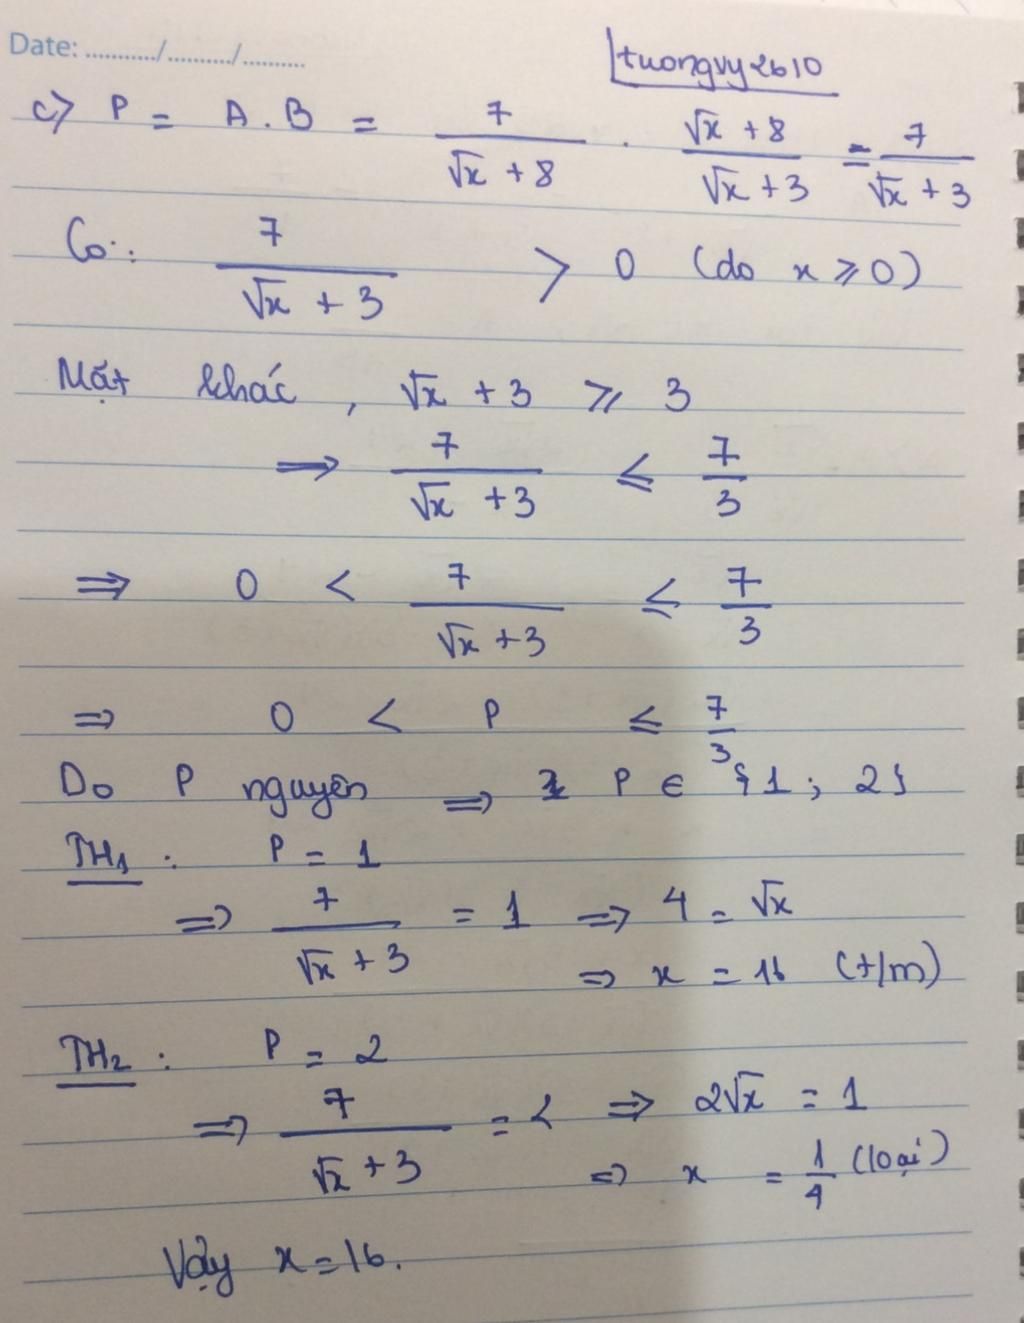 Date: ........../........../..........
tuongvy2610
c) P = A . B = 7/(√x + 8) . (√x + 8)/(√x + 3) = 7/(√x + 3)
Có: 7/(√x + 3) > 0 (do x ⩾ 0)
Mặt khác, √x + 3 ⩾ 3
⇒ 7/(√x + 3) ⩽ 7/3
⇒ 0 < 7/(√x + 3) ⩽ 7/3
⇒ 0 < P ⩽ 7/3
Do P nguyên ⇒ P ∈ {1 ; 2}
TH1 : P = 1
⇒ 7/(√x + 3) = 1 ⇒ 4 = √x
⇒ x = 16 (t/m)
TH2 : P = 2
⇒ 7/(√x + 3) = 2 ⇒ 2√x = 1
⇒ x = 1/4 (loại)
Vậy x = 16.